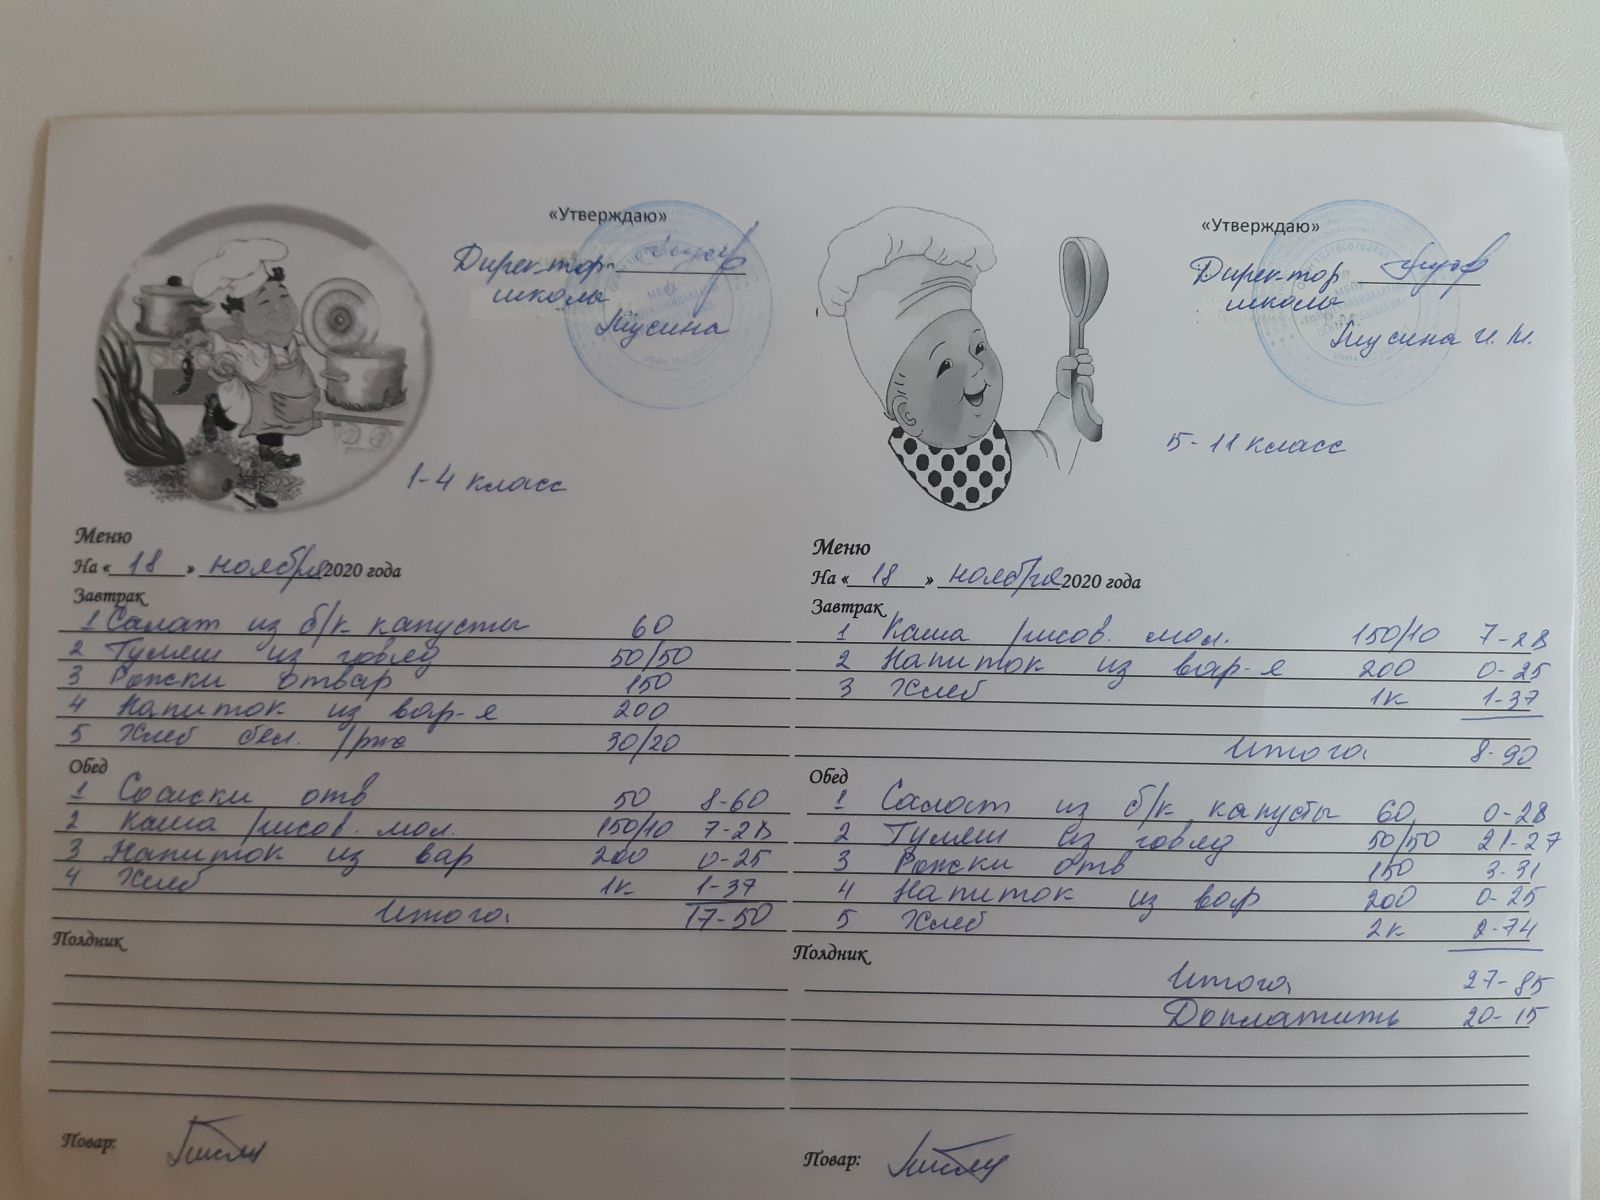 «Утверждаю»
Директор
школы
Мусина
1-4 класс
Меню
На « 18 » ноября 2020 года
Завтрак
1 Салат из б/к капусты 60
2 Гуляш из говяд 50/50
3 Рожки отвар 150
4 Напиток из вар-я 200
5 Хлеб бел. /рж 30/20
Обед
1 Сосиски отв 50 8-60
2 Каша рисов. мол. 150/10 7-28
3 Напиток из вар 200 0-25
4 Хлеб 1к 1-37
Итого 17-50
Полдник
Повар:
«Утверждаю»
Директор
школы
Мусина И. М.
5-11 класс
Меню
На « 18 » ноября 2020 года
Завтрак
1 Каша рисов. мол. 150/10 7-28
2 Напиток из вар-я 200 0-25
3 Хлеб 1к 1-37
Итого 8-90
Обед
1 Салат из б/к капусты 60 0-28
2 Гуляш из говяд 50/50 21-27
3 Рожки отв 150 3-31
4 Напиток из вар 200 0-25
5 Хлеб 2к 2-74
Полдник
Итого 27-85
Доплатить 20-15
Повар: